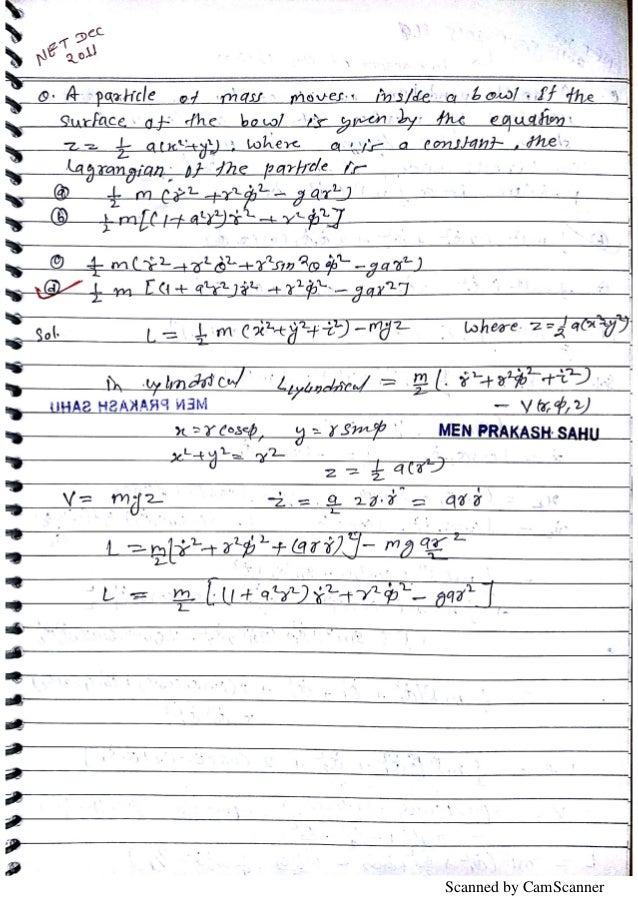 NET Dec
2011
Q. A particle of mass moves inside a bowl. If the
surface of the bowl is given by the equation
z = ½ a(x²+y²); where a is a constant, the
Lagrangian of the particle is
(a) ½ m (ṙ² + r²φ̇² - gar²)
(b) ½ m[(1+a²r²)ṙ² + r²φ̇²]
(c) ½ m(ṙ² + r²θ̇² + r²sin²θ φ̇² - gar²)
(d) ½ m [(1+a²r²)ṙ² + r²φ̇² - gar²]
Sol. L = ½ m (ẋ²+ẏ²+ż²) - mgz where z = ½ a(x²y²)
in cylindrical Lcylindrical = m/2 (ṙ² + r²φ̇² + ż²)
- V(r, φ, z)
MEN PRAKASH SAHU
x = r cosφ, y = r sinφ MEN PRAKASH SAHU
x² + y² = r²
z = ½ a(r²)
V = mgz ż = a/2 2r·ṙ = arṙ
L = m/2 [ṙ² + r²φ̇² + (arṙ)²] - mg ar²/2
L = m/2 [(1+a²r²)ṙ² + r²φ̇² - gar²]
Scanned by CamScanner